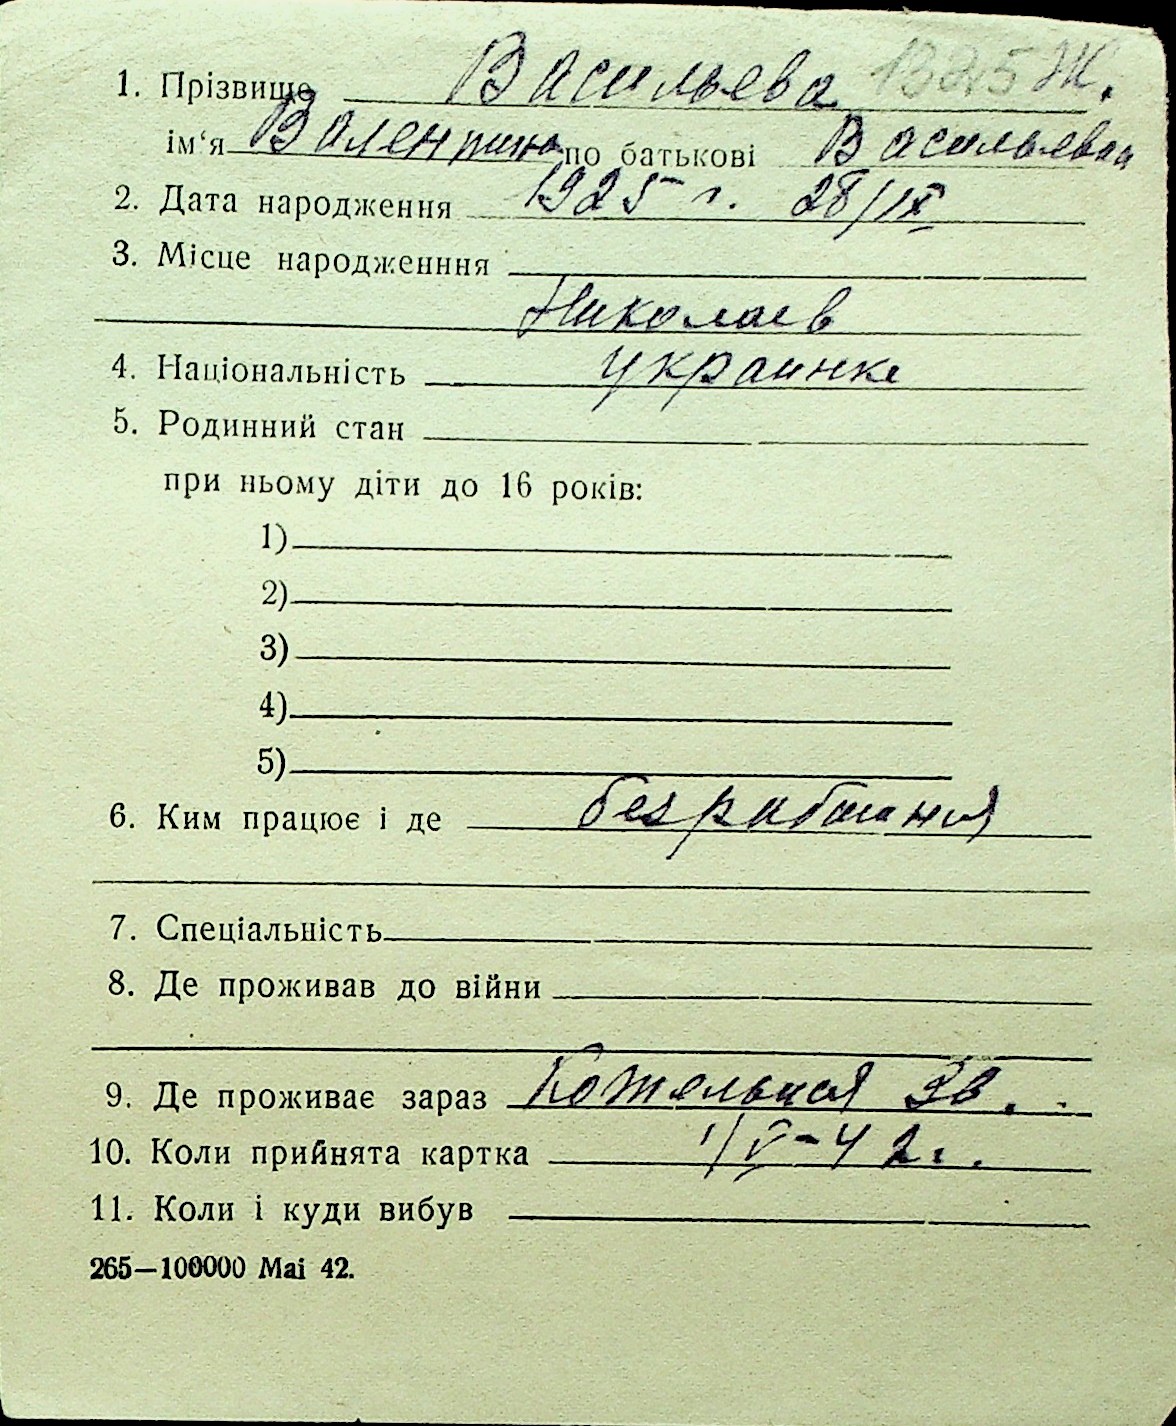 1. Прізвище Васильева 1325 Ж.
ім‘я Валентина по батькові Васильевна
2. Дата народження 1925 г. 28/IX
3. Місце народженння
Николаев
4. Національність украинка
5. Родинний стан
при ньому діти до 16 років:
1)
2)
3)
4)
5)
6. Ким працює і де безработная
7. Спеціальність
8. Де проживав до війни
9. Де проживає зараз Котельная
10. Коли прийнята картка 1/V-42г.
11. Коли і куди вибув
265—100000 Mai 42.